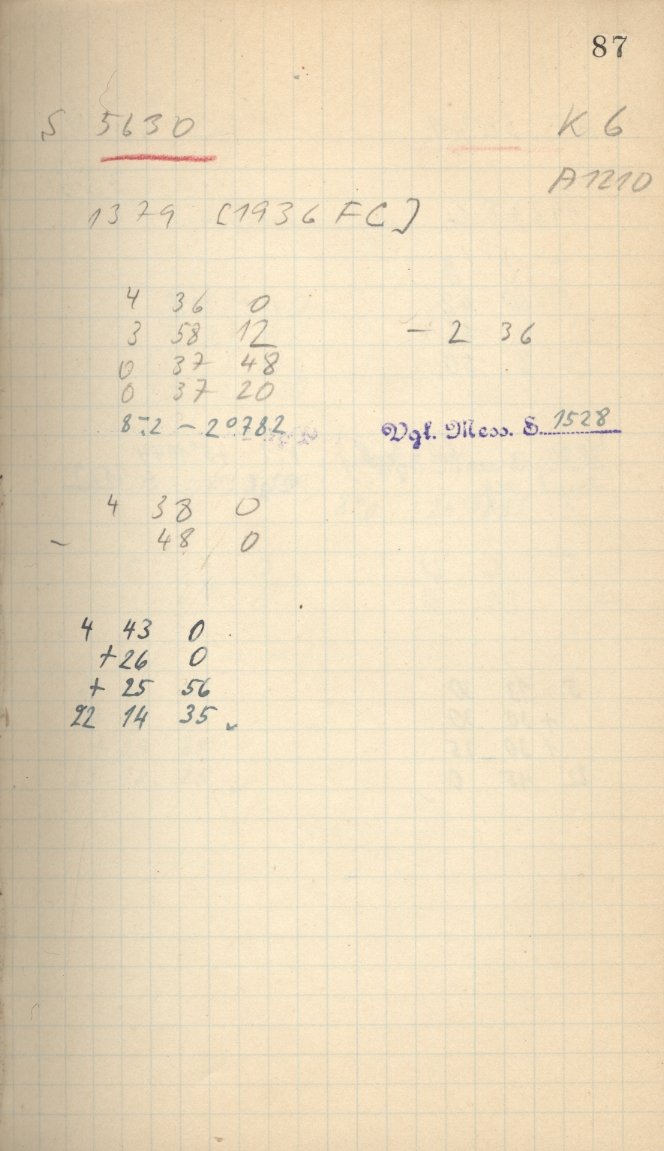 87
S 5630 K 6
A1210
1379 [1936 FC]
4 36 0
3 58 12 - 2 36
0 37 48
0 37 20
8-2 - 20782 Vgl. Mess. S. 1528
4 38 0
- 48 0
4 43 0
+26 0
+ 25 56
22 14 35